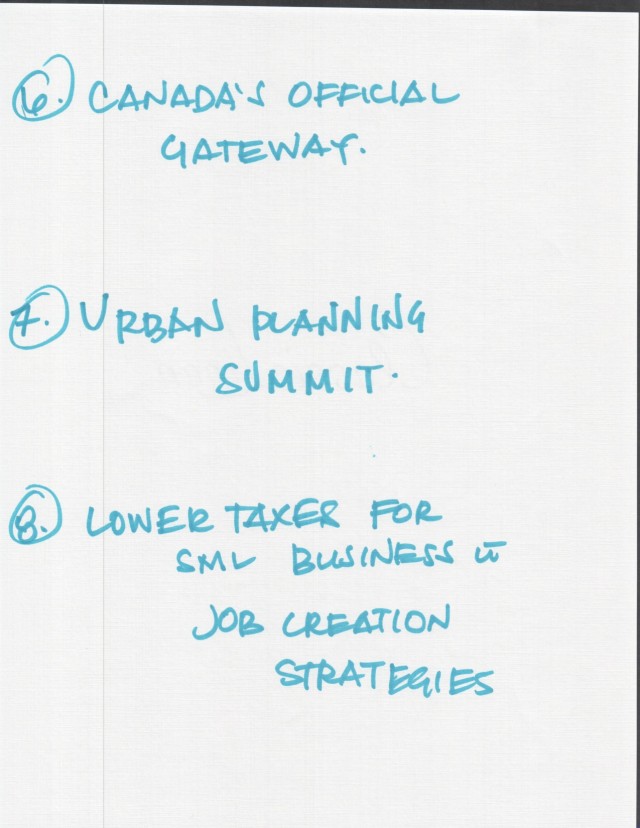 6. CANADA'S OFFICIAL
GATEWAY.
7. URBAN PLANNING
SUMMIT.
8. LOWER TAXES FOR
SML BUSINESS w̄
JOB CREATION
STRATEGIES